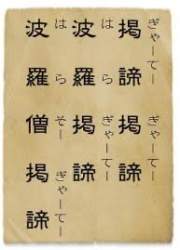 ぎゃーてー ぎゃーてー
掲諦 掲諦
は ら ぎゃーてー
波羅掲諦
は ら そー ぎゃーてー
波羅僧掲諦